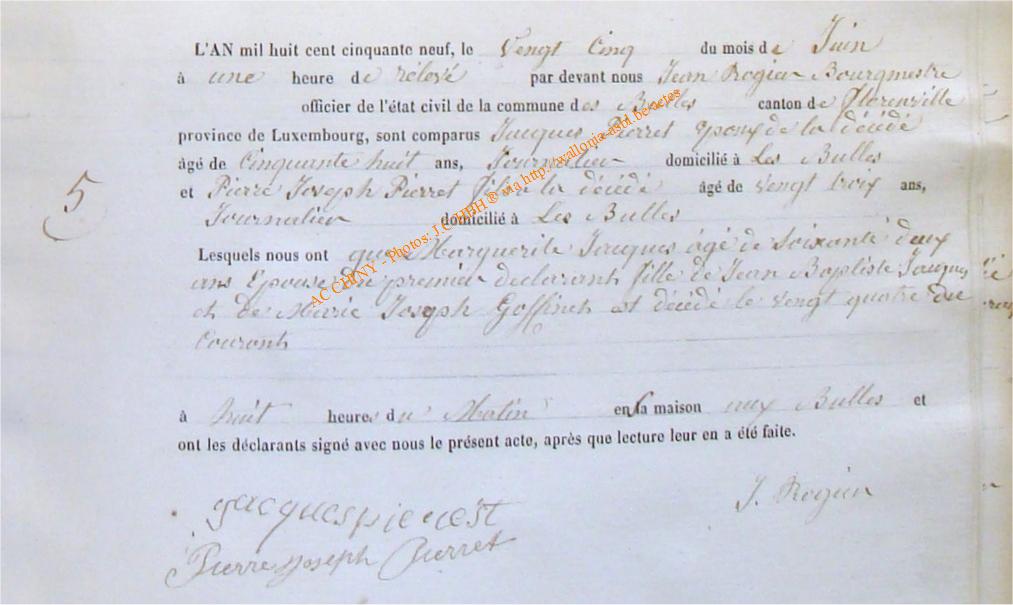 L'AN mil huit cent cinquante neuf, le Vengt Cinq du mois de Juin
à une heure de rélevé par devant nous Jean Rogier Bourgmestre
officier de l'état civil de la commune des Bulles canton de Florenville
province de Luxembourg, sont comparus Jacques Pierret Epoux de la décédé
âgé de Cinquante huit ans, Journalier domicilié à Les Bulles
5
et Pierre Joseph Pierret fils la décédé âgé de vengt troix ans,
Journalier domicilié à Les Bulles
Lesquels nous ont que Marguerite Jacques âgé de Soixante deux
ans Epouse du premier declarant fille de Jean Baptiste Jacques
et de Marie Joseph Goffinet est décédé le vengt quatre du
Courant
à huit heures du Matin en sa maison aux Bulles et
ont les déclarants signé avec nous le présent acte, après que lecture leur en a été faite.
J. Rogier
Pierre Joseph Pierret
AC CHINY - Photos: J.C. HBH ® via http://wallonia-asbl.be/actes